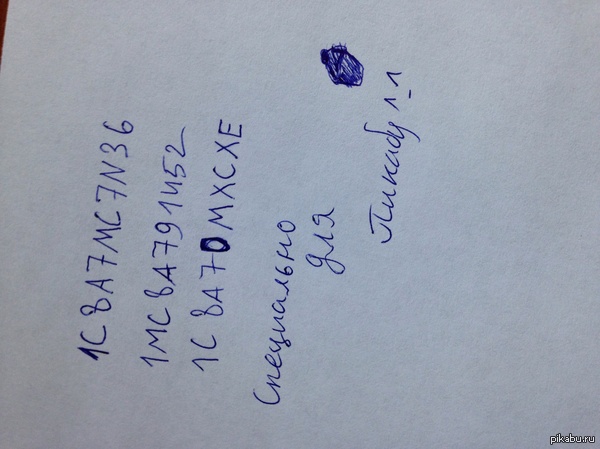 1C8A7MC7N36
1MC8A791452
1C8A70MXCXE
Специально
для
Пикабу ^_^
pikabu.ru